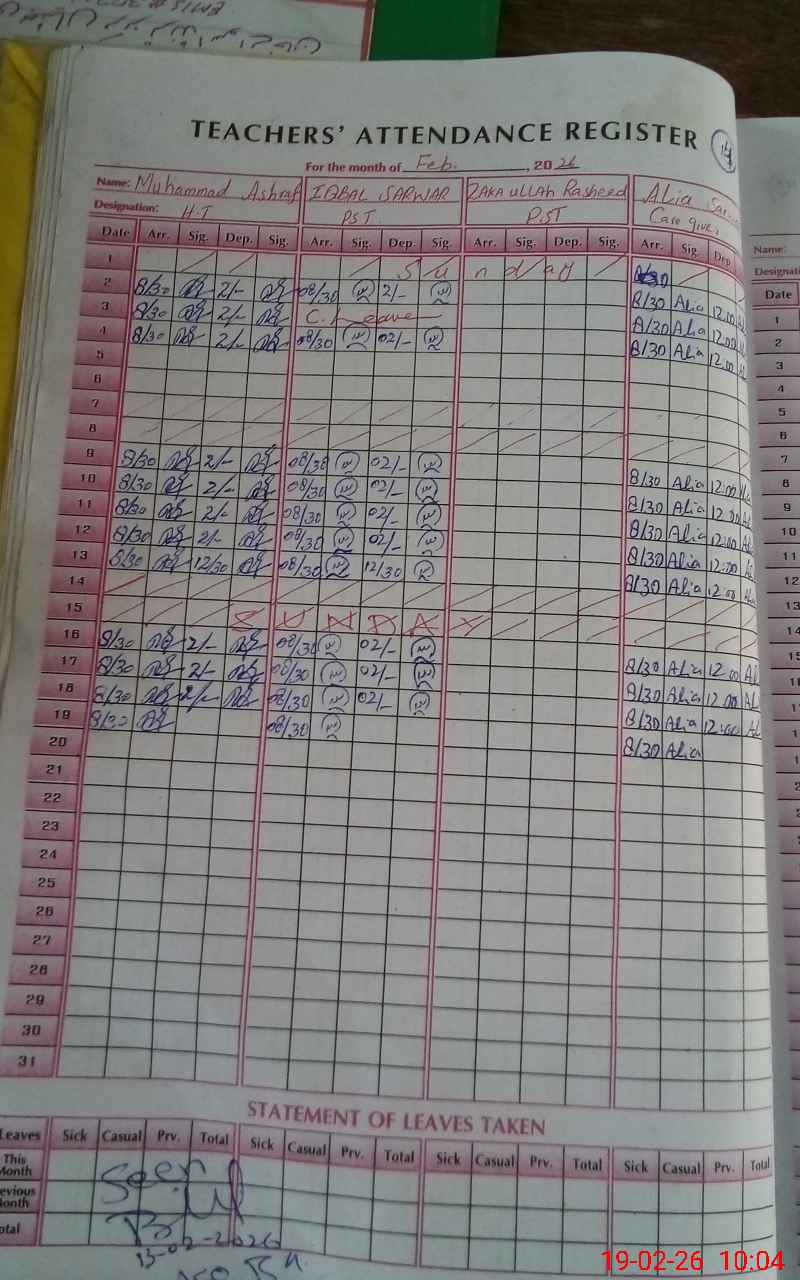 TEACHERS' ATTENDANCE REGISTER
14
For the month of Feb. , 2026
Name: Muhammad Ashraf IQBAL SARWAR ZAKA ULLAH Rasheed Alia
Designation: H.T PST. PST Care giver
Date Arr. Sig. Dep. Sig. Arr. Sig. Dep. Sig. Arr. Sig. Dep. Sig. Arr. Sig. Dep.
1 Sunday
2 8/30 2/- 08/30 2/- 8/30 Alia 12:00
3 8/30 2/- C. Leave 8/30 Alia 12:00
4 8/30 2/- 08/30 02/- 8/30 Alia 12:00
5
6
7
8
9 8/30 2/- 08/30 02/- 8/30 Alia 12:00
10 8/30 2/- 08/30 02/- 8/30 Alia 12:00
11 8/30 2/- 08/30 02/- 8/30 Alia 12:00
12 8/30 2/- 08/30 02/- 8/30 Alia 12:00
13 8/30 12/30 08/30 12/30 8/30 Alia 12:00
14
15 SUNDAY
16 8/30 2/- 08/30 02/- 8/30 Alia 12:00
17 8/30 2/- 08/30 02/- 8/30 Alia 12:00
18 8/30 2/- 08/30 02/- 8/30 Alia 12:00
19 8/30 08/30 8/30 Alia
20
21
22
23
24
25
26
27
28
29
30
31
STATEMENT OF LEAVES TAKEN
Leaves Sick Casual Prv. Total Sick Casual Prv. Total Sick Casual Prv. Total Sick Casual Prv. Total
This Month
Previous Month
Total
Seen
13-02-2026
Name:
Designati
Date
1
2
3
4
5
6
7
8
9
10
11
12
13
14
19-02-26 10:04